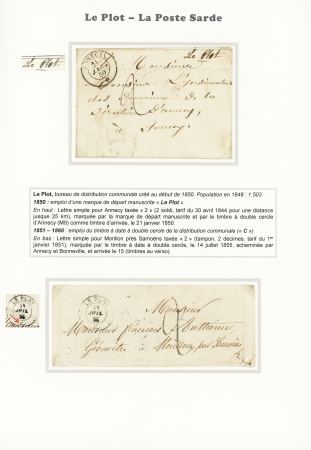 Le Plot – La Poste Sarde
Le Plot
Le Plot
ANNECY
21
JANV
50
Monsieur
Monsieur
des Domaines de la
2
Annecy
Le Plot, bureau de distribution communale créé au début de 1850. Population en 1848 : 1.503.
1850 : emploi d'une marque de départ manuscrite « Le Plot ».
En haut : Lettre simple pour Annecy taxée « 2 » (2 soldi, tarif du 30 avril 1844 pour une distance
jusque 25 km), marquée par la marque de départ manuscrite et par le timbre à double cercle
d'Annecy (M9) comme timbre d'arrivée, le 21 janvier 1850.
1851 – 1860 : emploi du timbre à date à double cercle de la distribution communale (« C »)
En bas : Lettre simple pour Morillon près Samoëns taxée « 2 » (tampon, 2 décimes, tarif du 1er
janvier 1851), marquée par le timbre à date à double cercle, le 14 juillet 1855, acheminée par
Annecy et Bonneville, et arrivée le 15 (timbres au verso).
LE PLOT
14
JUIL
LE PLOT
14
JUIL
Monsieur
Monsieur
Géomètre à Morillon, par Samoëns